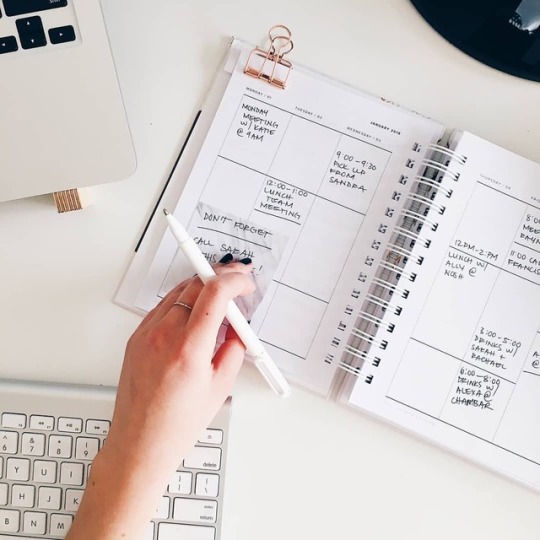 JANUARY 2018
MONDAY
TUESDAY
WEDNESDAY
THURSDAY
MONDAY
MEETING
W/ KATIE
@ 9AM
9:00-9:30
PICK UP
FROM
SANDRA
12:00-1:00
LUNCH
TEAM
MEETING
DON'T FORGET
CALL SARAH
!
12PM-2PM
LUNCH W/
ALLY @
NOSH
3:00-5:00
DRINKS W/
SARAH +
RACHAEL
6:00-8:00
DRINKS W/
ALEXA @
CHAMBAR
8:00
MEET
11:00 CA
FRANCIS
6
7
8
9
0
Y
U
I
H
J
K
B
N
M
delete
return